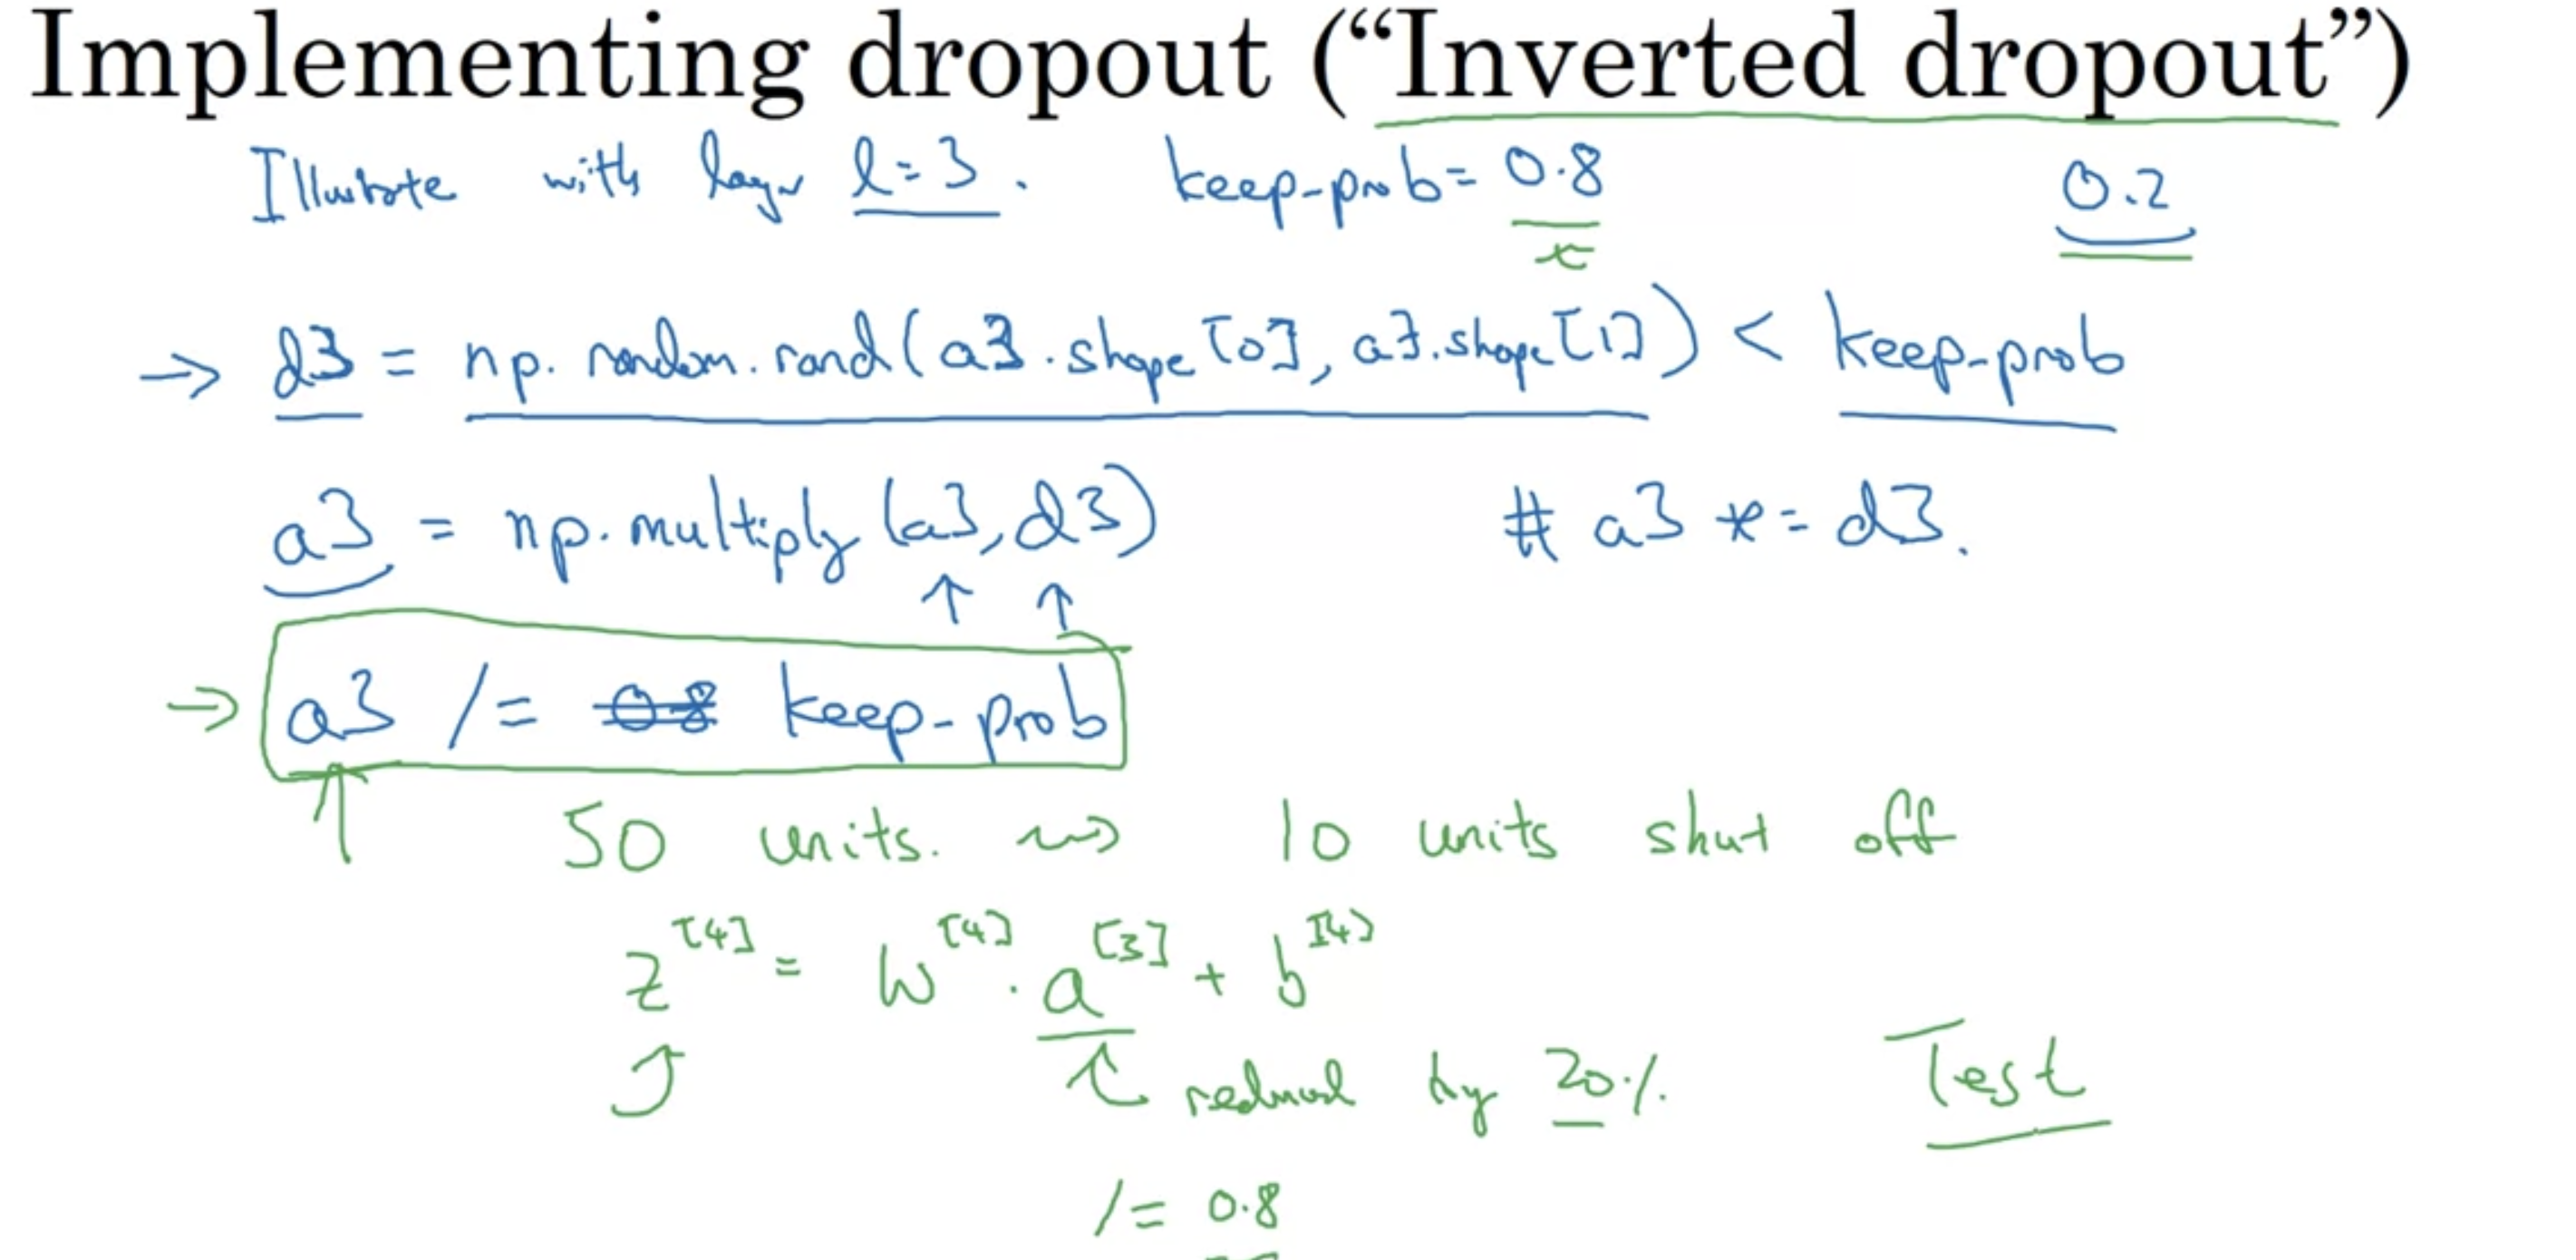 Implementing dropout (“Inverted dropout”)
Illustrate with layer l=3. keep-prob= 0.8 0.2
→ d3 = np. random. rand(a3. shape[0], a3. shape[1]) < keep-prob
a3 = np. multiply(a3, d3) # a3 *= d3.
→ a3 /= 0.8 keep-prob
50 units. ⇝ 10 units shut off
z^[4] = W^[4] · a^[3] + b^[4]
reduced by 20% Test
/= 0.8